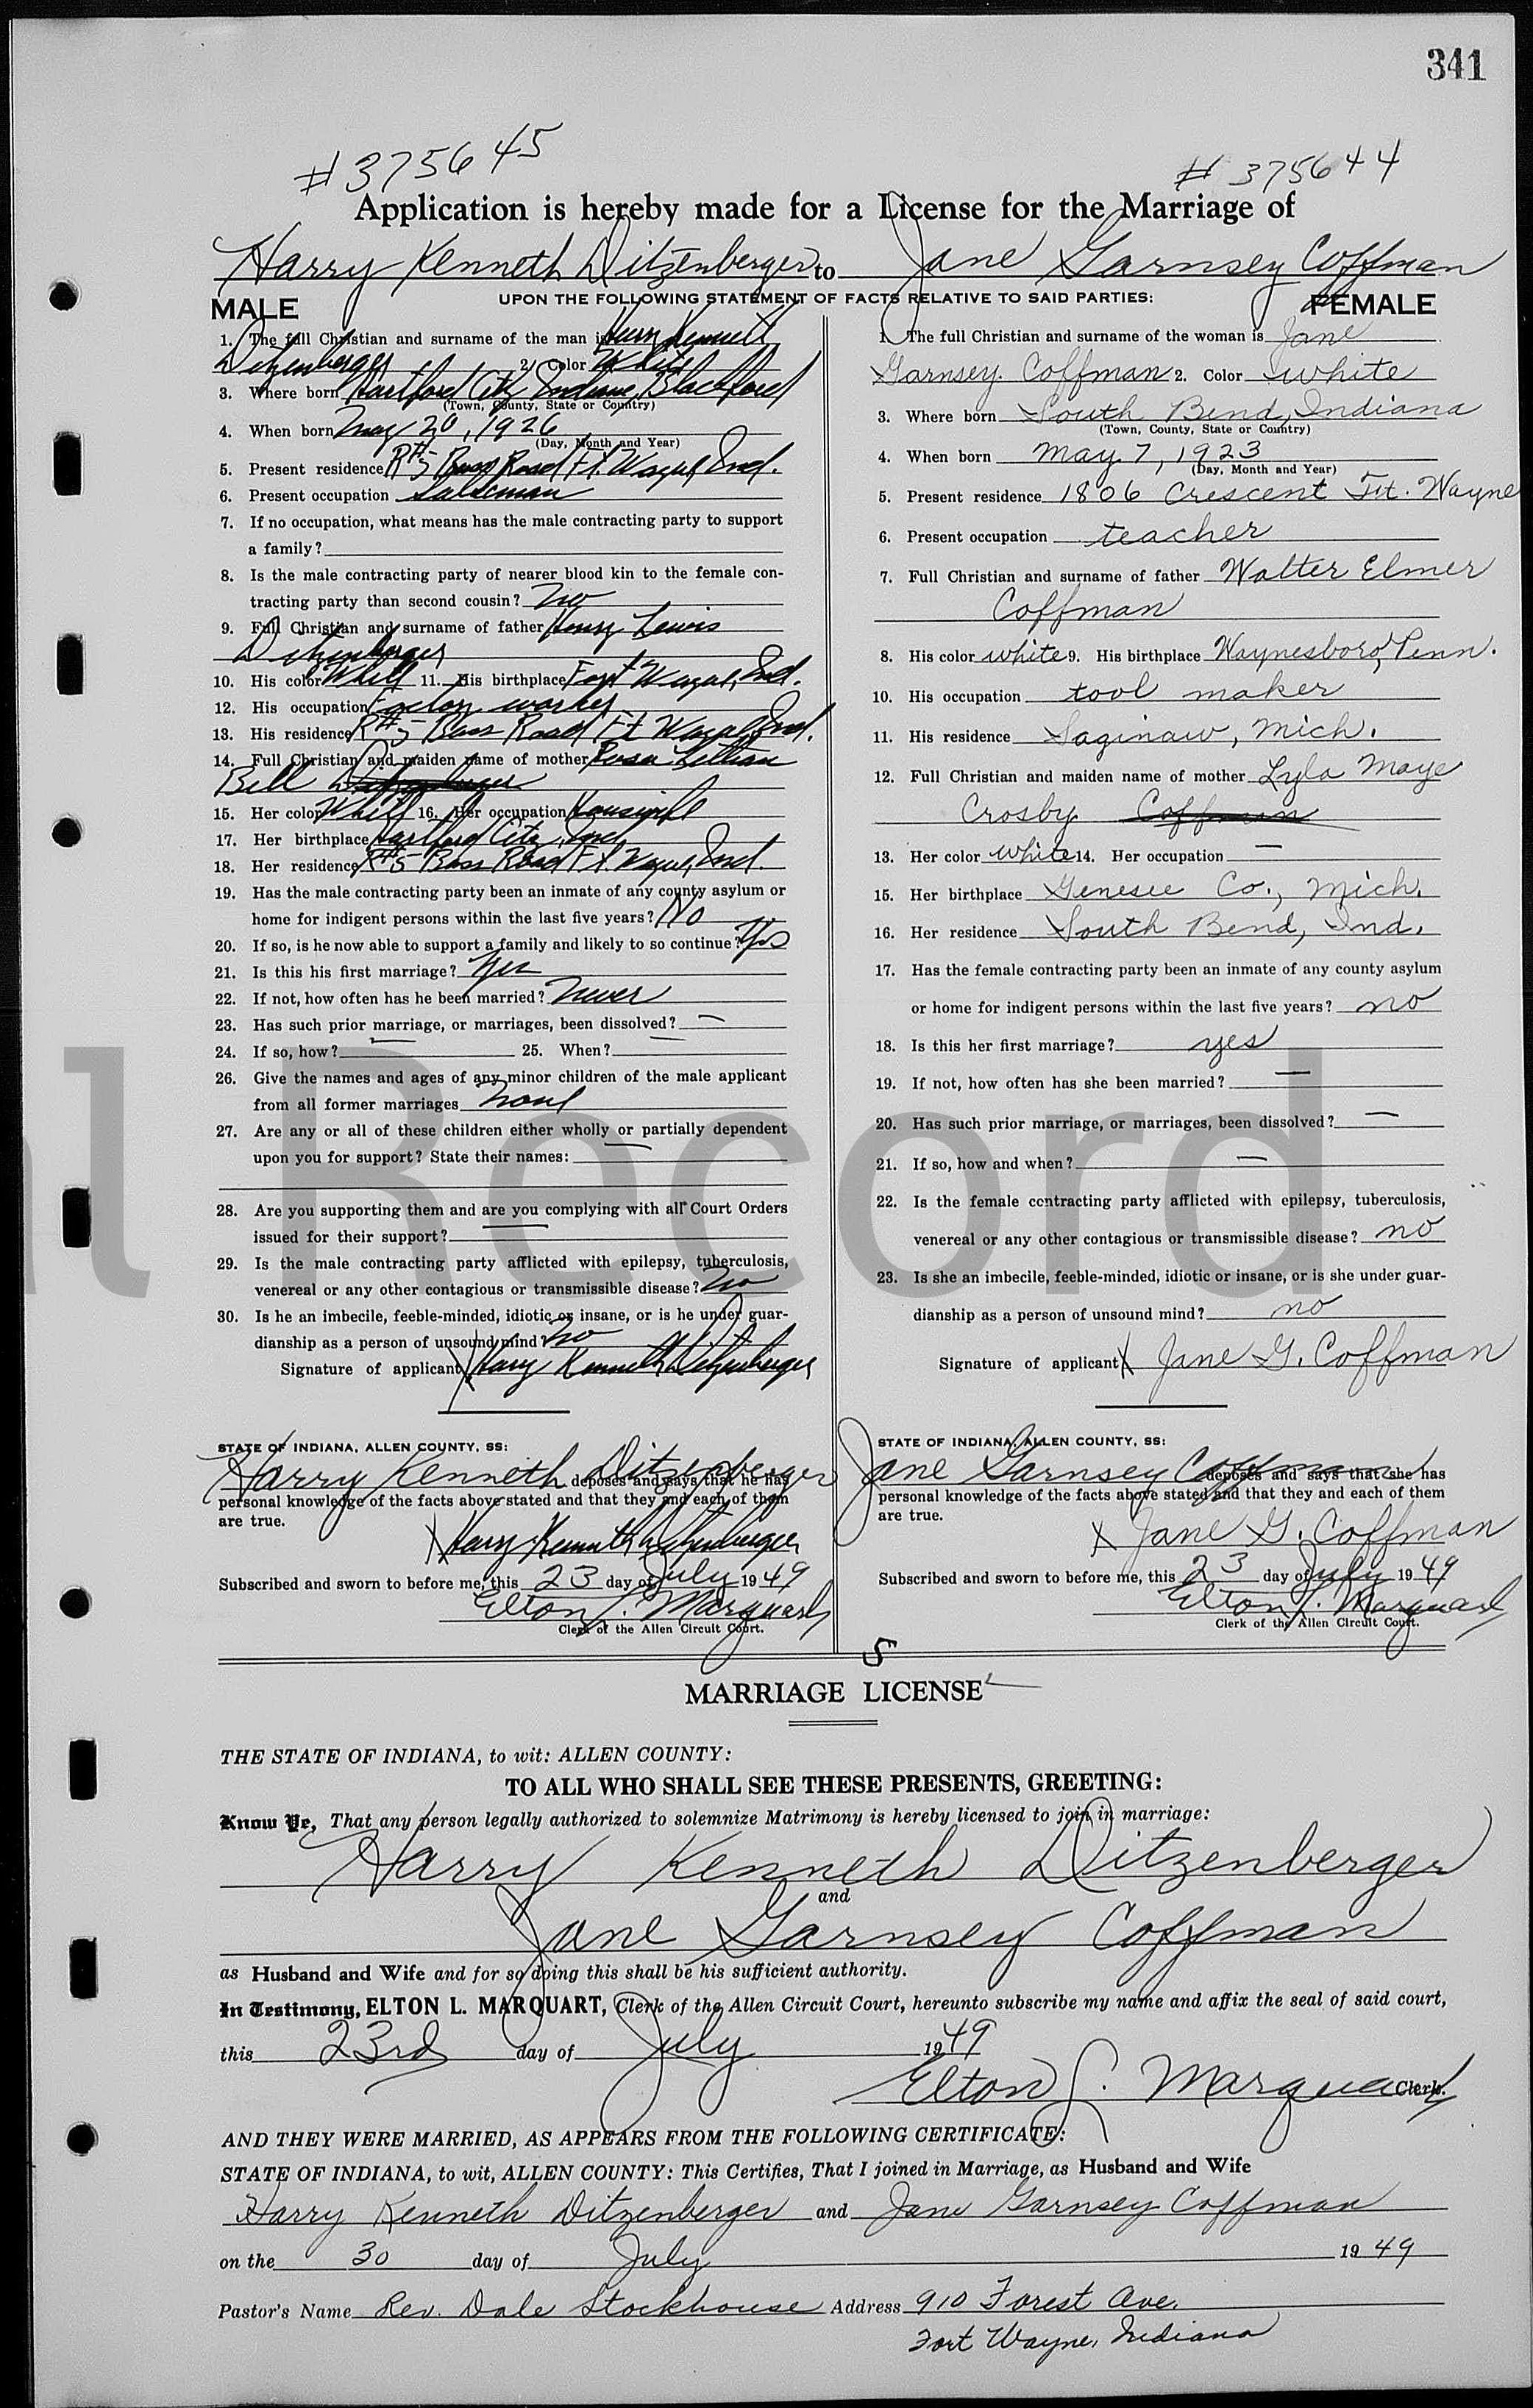 341
#375645
#375644
Application is hereby made for a License for the Marriage of
Harry Kenneth Ditzenberger to Jane Garnsey Coffman
UPON THE FOLLOWING STATEMENT OF FACTS RELATIVE TO SAID PARTIES:
MALE
1. The full Christian and surname of the man is Harry Kenneth
Ditzenberger 2. Color White
3. Where born Hartford City Indiana, Blackford
(Town, County, State or Country)
4. When born May 20, 1926
(Day, Month and Year)
5. Present residence R#5 Bass Road Ft. Wayne, Ind.
6. Present occupation Salesman
7. If no occupation, what means has the male contracting party to support
a family?
8. Is the male contracting party of nearer blood kin to the female con-
tracting party than second cousin? No
9. Full Christian and surname of father Lewis
Ditzenberger
10. His color White 11. His birthplace Fort Wayne, Ind.
12. His occupation Factory worker
13. His residence R#5 Bass Road Ft Wayne, Ind.
14. Full Christian and maiden name of mother Rosa Lillian
Bell Ditzenberger
15. Her color White 16. Her occupation Housewife
17. Her birthplace Hartford City, Ind
18. Her residence R#5 Bass Road Ft. Wayne, Ind.
19. Has the male contracting party been an inmate of any county asylum or
home for indigent persons within the last five years? No
20. If so, is he now able to support a family and likely to so continue? Yes
21. Is this his first marriage? Yes
22. If not, how often has he been married? Never
23. Has such prior marriage, or marriages, been dissolved? —
24. If so, how? — 25. When? —
26. Give the names and ages of any minor children of the male applicant
from all former marriages None
27. Are any or all of these children either wholly or partially dependent
upon you for support? State their names: —
28. Are you supporting them and are you complying with all Court Orders
issued for their support? —
29. Is the male contracting party afflicted with epilepsy, tuberculosis,
venereal or any other contagious or transmissible disease? No
30. Is he an imbecile, feeble-minded, idiotic or insane, or is he under guar-
dianship as a person of unsound mind? No
Signature of applicant X Harry Kenneth Ditzenberger
STATE OF INDIANA, ALLEN COUNTY, SS:
Harry Kenneth Ditzenberger deposes and says that he has
personal knowledge of the facts above stated and that they and each of them
are true.
X Harry Kenneth Ditzenberger
Subscribed and sworn to before me, this 23 day of July 1949
Elton L. Marquart
Clerk of the Allen Circuit Court.
FEMALE
1. The full Christian and surname of the woman is Jane
Garnsey Coffman 2. Color White
3. Where born South Bend, Indiana
(Town, County, State or Country)
4. When born May 7, 1923
(Day, Month and Year)
5. Present residence 1806 Crescent Ft. Wayne
6. Present occupation teacher
7. Full Christian and surname of father Walter Elmer
Coffman
8. His color white 9. His birthplace Waynesboro, Penn.
10. His occupation tool maker
11. His residence Saginaw, Mich.
12. Full Christian and maiden name of mother Lyla Maye
Crosby Coffman
13. Her color white 14. Her occupation —
15. Her birthplace Genesee Co., Mich.
16. Her residence South Bend, Ind.
17. Has the female contracting party been an inmate of any county asylum
or home for indigent persons within the last five years? no
18. Is this her first marriage? yes
19. If not, how often has she been married? —
20. Has such prior marriage, or marriages, been dissolved? —
21. If so, how and when? —
22. Is the female contracting party afflicted with epilepsy, tuberculosis,
venereal or any other contagious or transmissible disease? no
23. Is she an imbecile, feeble-minded, idiotic or insane, or is she under guar-
dianship as a person of unsound mind? no
Signature of applicant X Jane G. Coffman
STATE OF INDIANA, ALLEN COUNTY, SS:
Jane Garnsey Coffman deposes and says that she has
personal knowledge of the facts above stated and that they and each of them
are true.
X Jane G. Coffman
Subscribed and sworn to before me, this 23 day of July 1949
Elton L. Marquart
Clerk of the Allen Circuit Court.
5
MARRIAGE LICENSE
THE STATE OF INDIANA, to wit: ALLEN COUNTY:
TO ALL WHO SHALL SEE THESE PRESENTS, GREETING:
Know Ye, That any person legally authorized to solemnize Matrimony is hereby licensed to join in marriage:
Harry Kenneth Ditzenberger
and
Jane Garnsey Coffman
as Husband and Wife and for so doing this shall be his sufficient authority.
In Testimony, ELTON L. MARQUART, Clerk of the Allen Circuit Court, hereunto subscribe my name and affix the seal of said court,
this 23rd day of July 1949
Elton L. Marquart Clerk.
AND THEY WERE MARRIED, AS APPEARS FROM THE FOLLOWING CERTIFICATE:
STATE OF INDIANA, to wit, ALLEN COUNTY: This Certifies, That I joined in Marriage, as Husband and Wife
Harry Kenneth Ditzenberger and Jane Garnsey Coffman
on the 30 day of July 1949
Pastor's Name Rev. Dale Stockhouse Address 910 Forest Ave.
Fort Wayne, Indiana
l Record